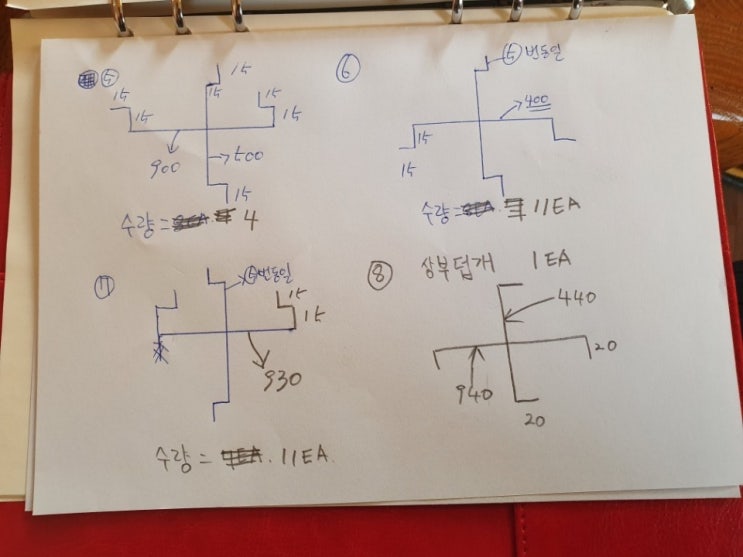 ⑤
15
15
15
15
15
15
900
500
15
수량 = 4
⑥
⑤번동일
400
15
15
수량 = 11EA
⑦
⑤번동일
15
15
930
수량 = 11EA.
⑧ 상부덥개 1EA
440
20
940
20